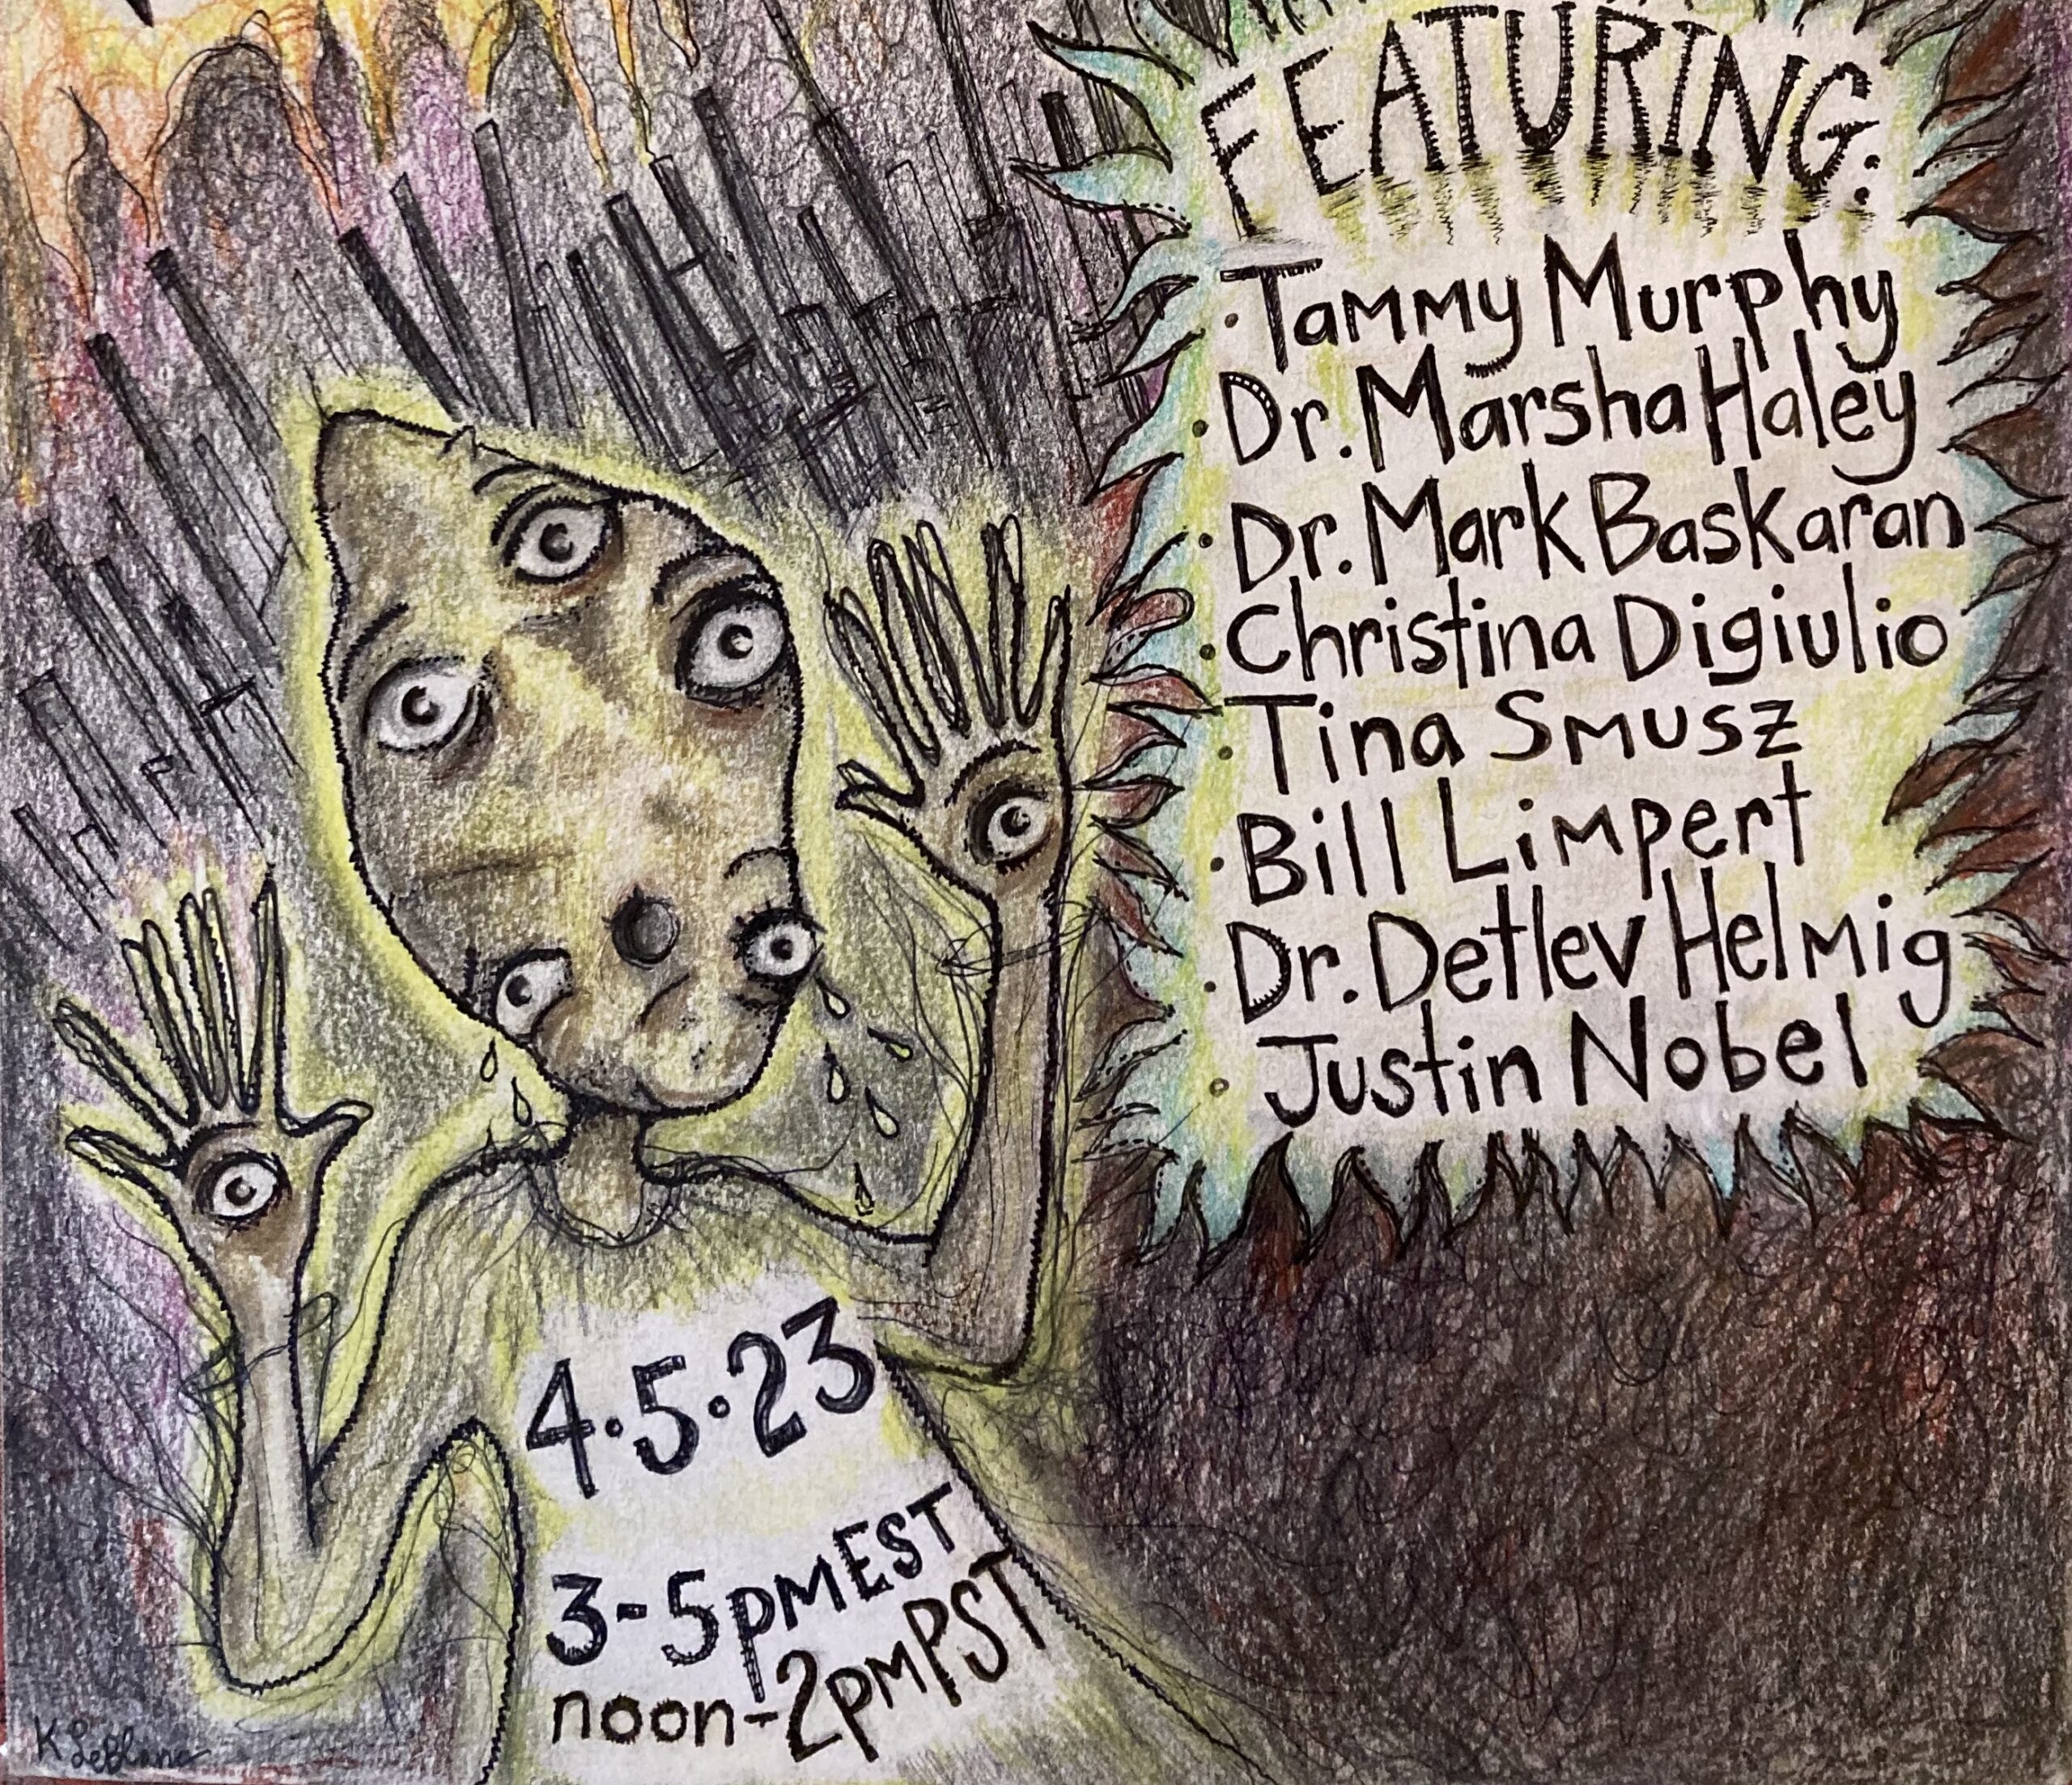 FEATURING:
· Tammy Murphy
· Dr. Marsha Haley
· Dr. Mark Baskaran
· Christina Digiulio
· Tina Smusz
· Bill Limpert
· Dr. Detlev Helmig
· Justin Nobel
4·5·23
3-5pm EST
noon-2pm PST
K LeBlanc